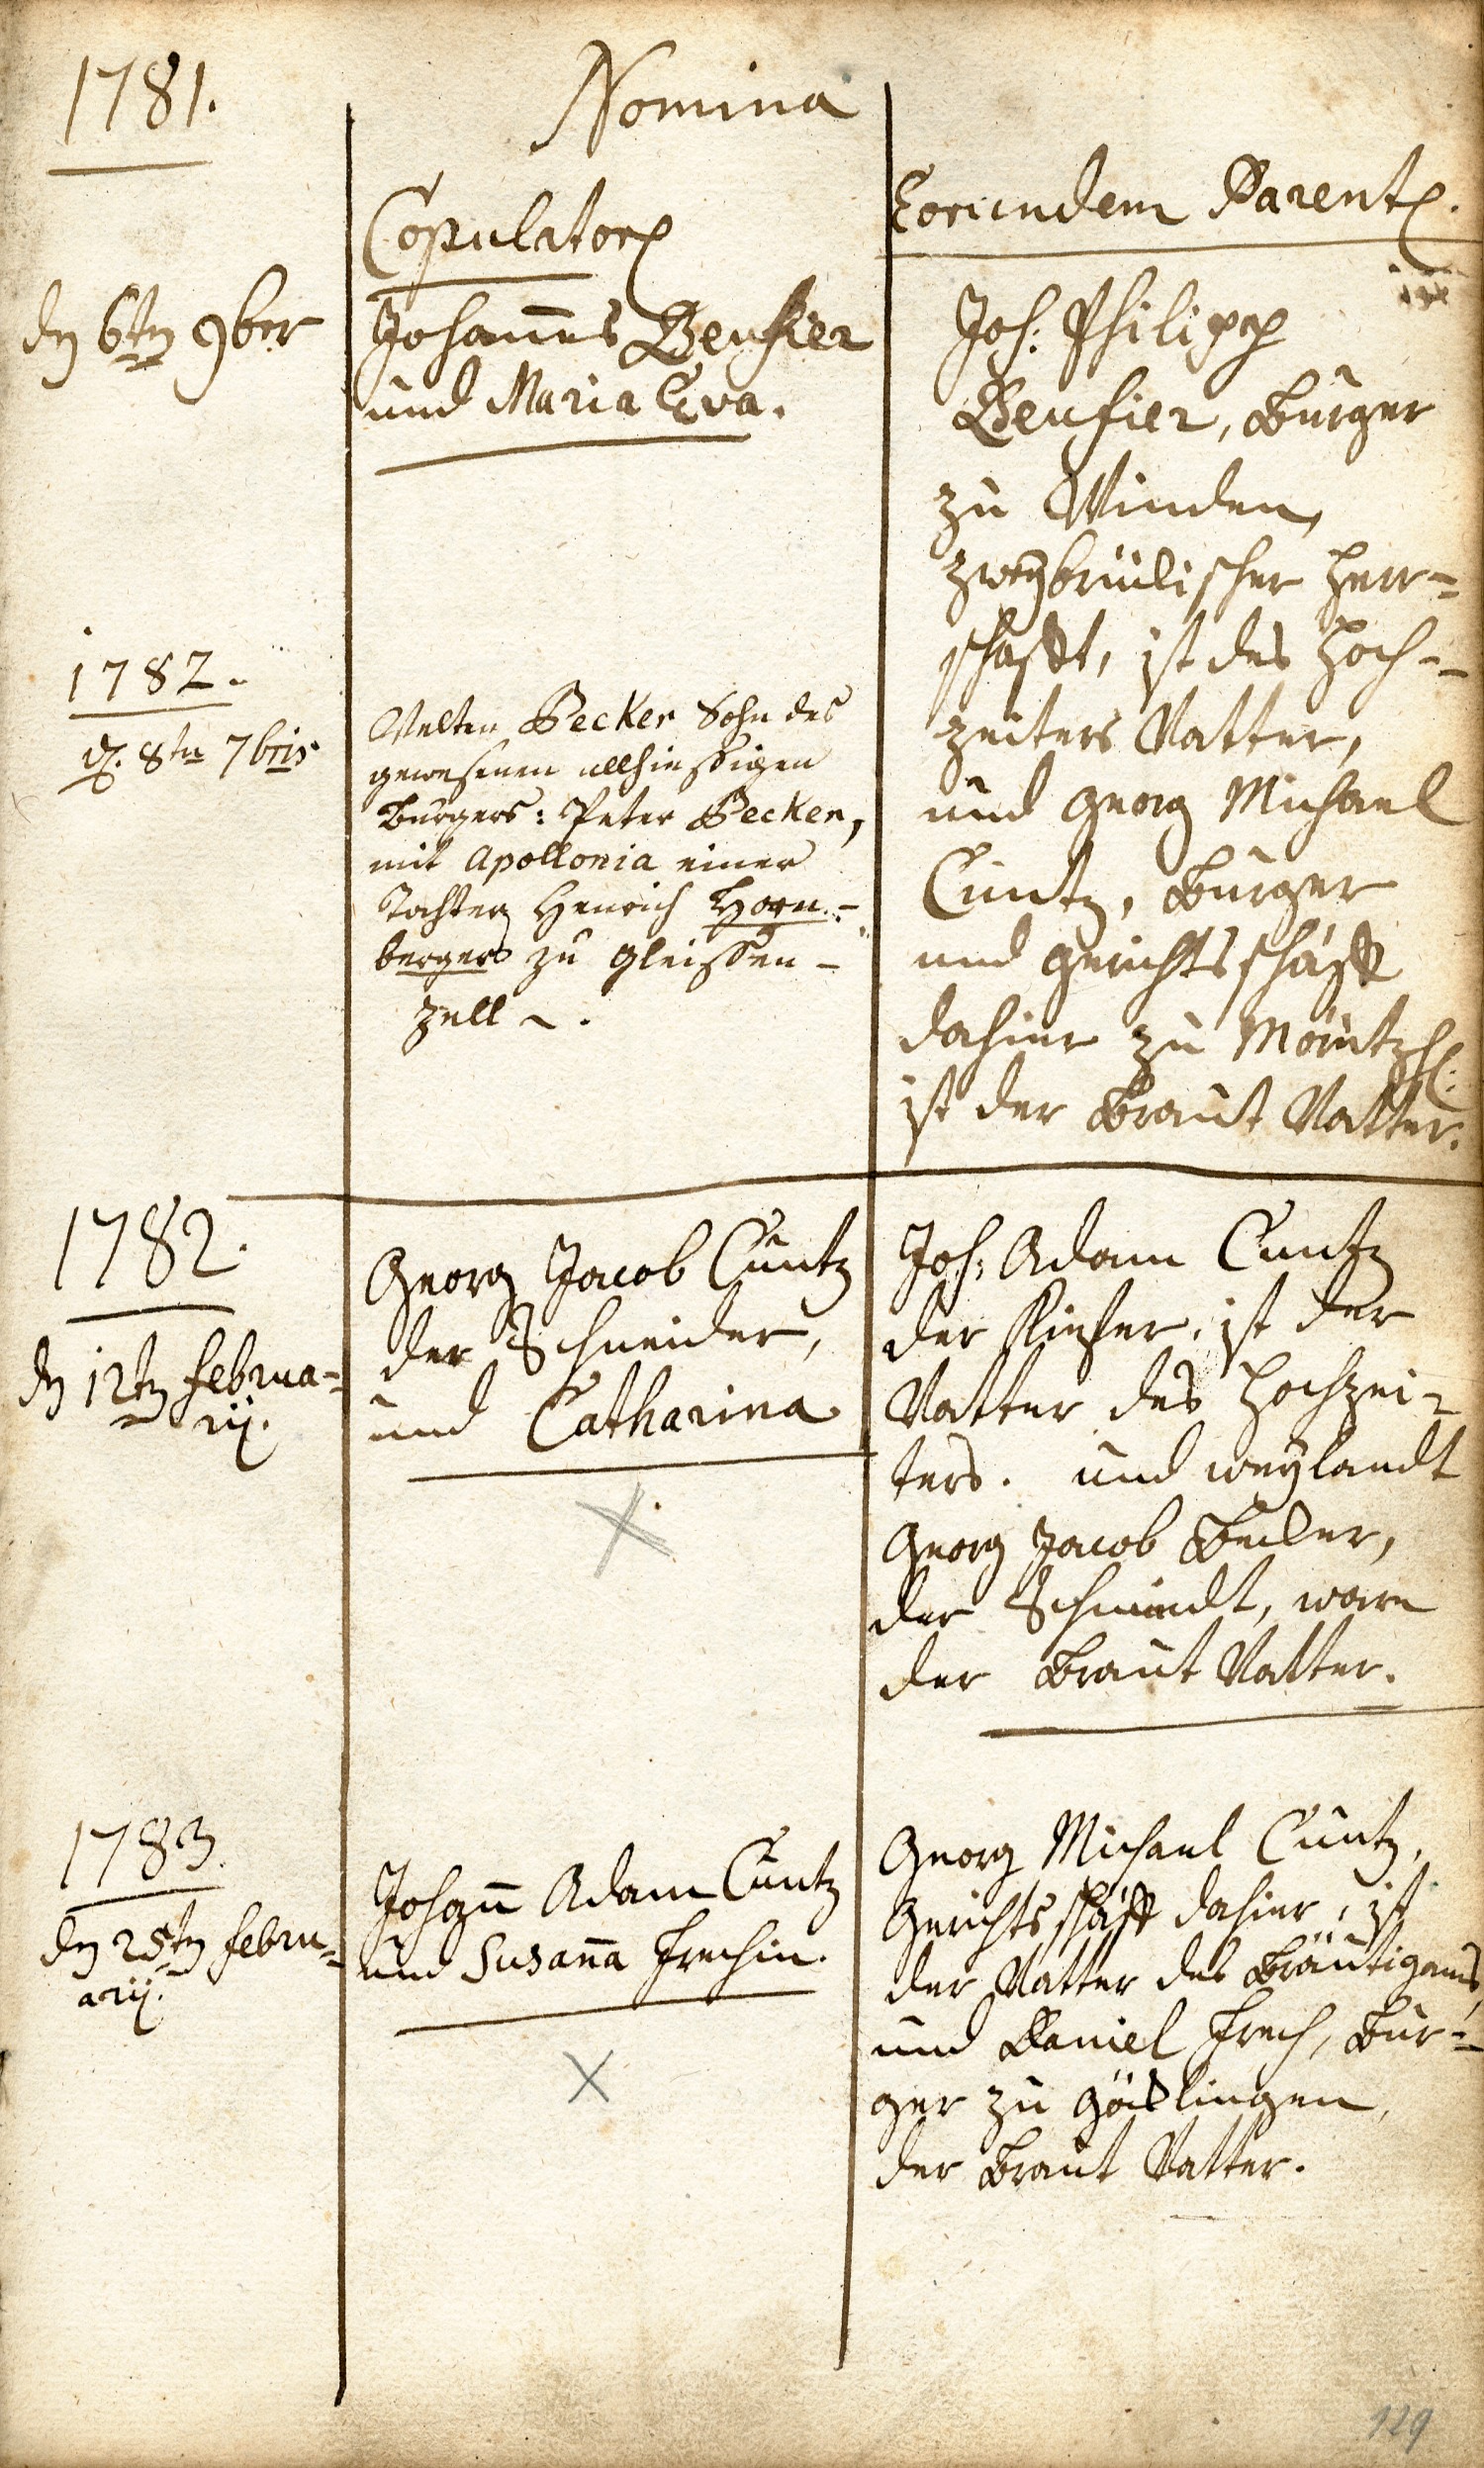 1781.
Nomina
Copulator
Eorundem Parent.
dn 6tn 9ber
Johannes Beufier
und Maria Eva.
Joh: Philipp
Beufier, Burger
zu Winden,
zweybrückischer Herr=
schafft, ist des Hoch-
zeiters Vatter,
und Georg Michael
Cuntz, Burger
und Gerichtsschäff
dahier zu Mörtzh:
ist der Braut Vatter.
1782.
d. 8ten 7bris
Velten Becker Sohn des
gewesenen allhiessigen
Burgers: Peter Becker,
mit Apollonia einer
Tochter Henrich Horn-
bergers zu Gleissen-
zell.
1782.
dn 12tn Februa=
rij.
Georg Jacob Cuntz
der Schneider,
und Catharina
Joh: Adam Cuntz
der Kiefer, ist der
Vatter des Hochzei-
ters. und weylandt
Georg Jacob
der Schmidt, ware
der Braut Vatter.
1783.
dn 25tn Febru=
arij.
Johann Adam Cuntz
und Susanna Frechin.
Georg Michael Cuntz,
Gerichtsschäff dahier, ist
der Vatter des Bräutigams,
und Daniel Frech, Bur=
ger zu Göcklingen,
der Braut Vatter.
129